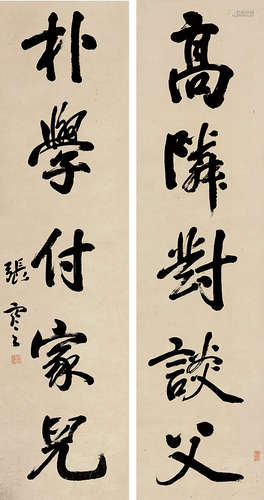 高隣對談父
朴學付家兒
張